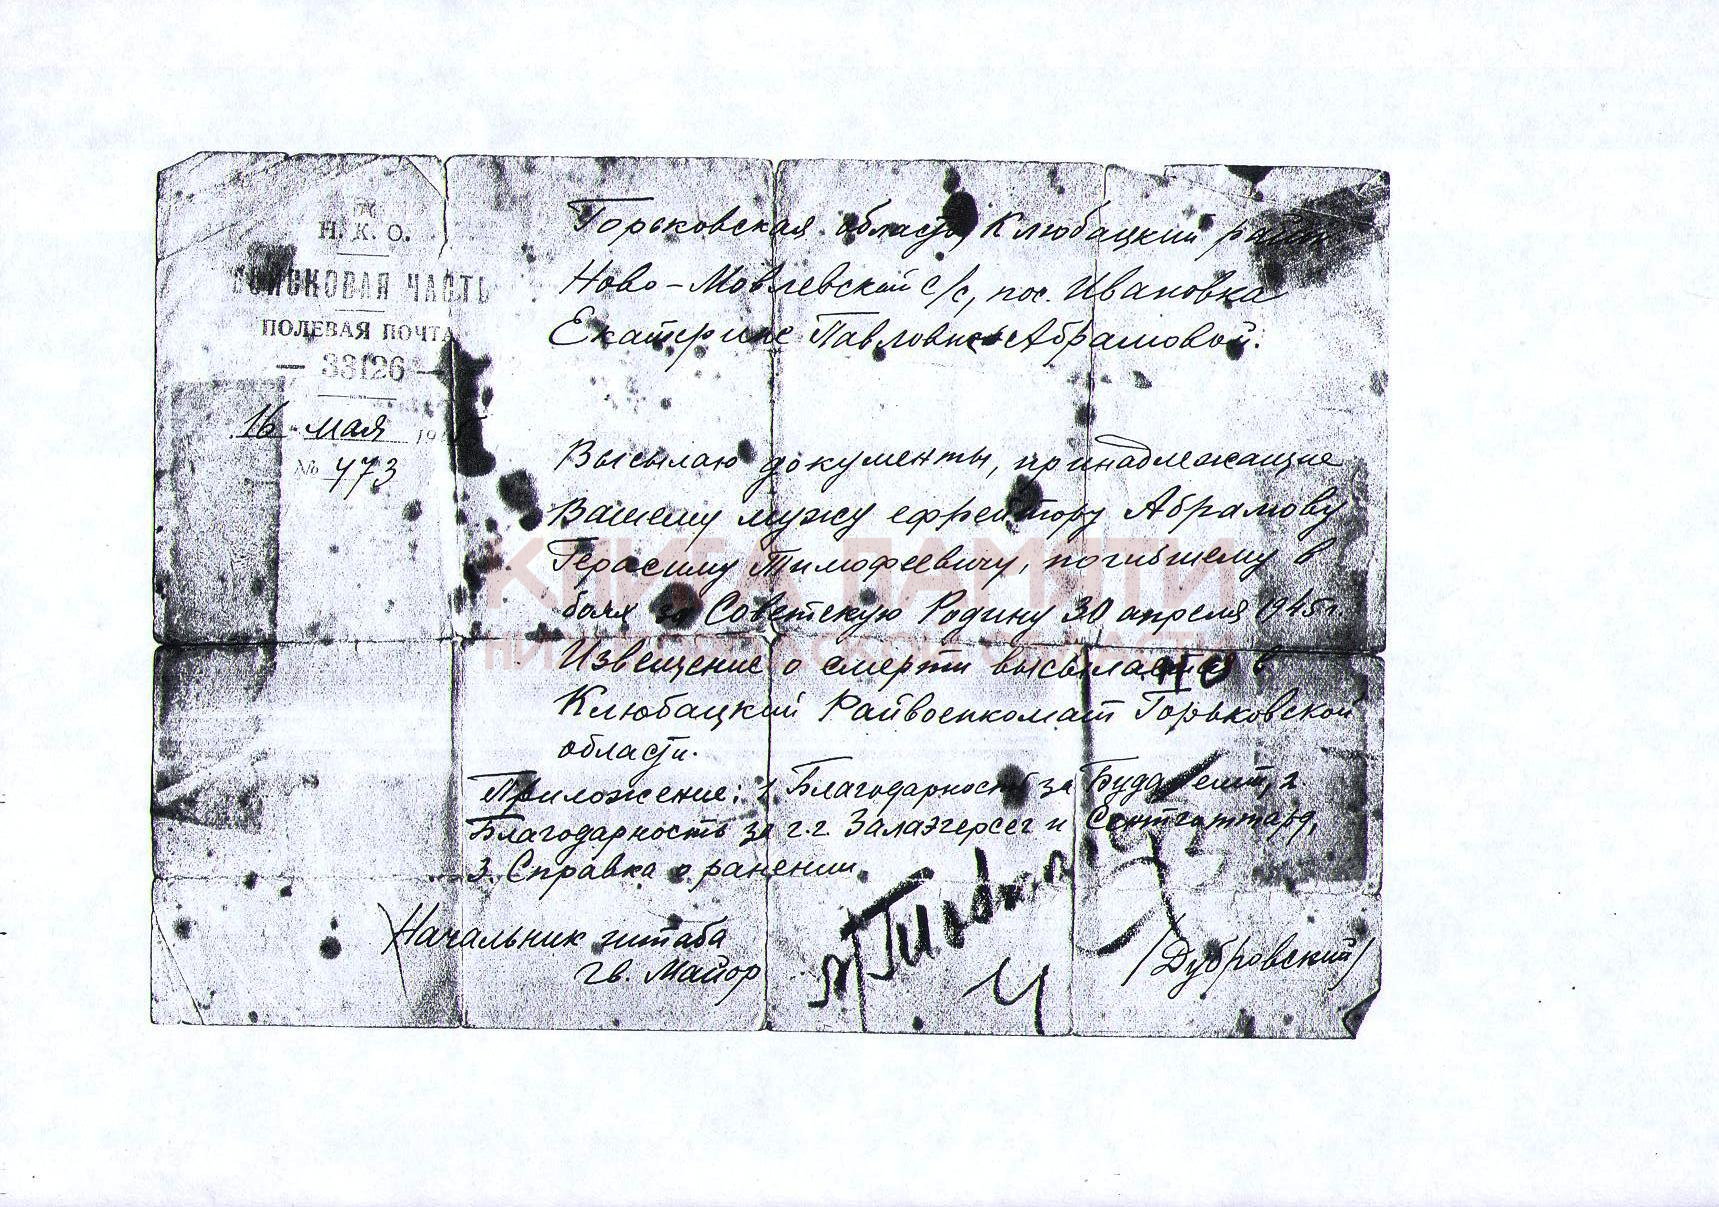 Н. К. О.
ВОЙСКОВАЯ ЧАСТЬ
ПОЛЕВАЯ ПОЧТА
— 33126 —
16 мая 194
№ 473
Горьковская область, Клюбацкий район
Ново-Мовлевский с/с, пос. Ивановка
Екатерине Павловне Абрамовой.
Высылаю документы, принадлежащие
Вашему мужу ефрейтору Абрамову
Герасиму Тимофеевичу, погибшему в
боях за Советскую Родину 30 апреля 1945г.
Извещение о смерти высылается в
Клюбацкий Райвоенкомат Горьковской
области.
Приложение: 1 Благодарность за Будапешт, 2.
Благодарность за г.г. Залаэгерсег и Сентготтард,
3. Справка о ранении.
Начальник штаба
гв. Майор
/Дубровский/
КНИГА ПАМЯТИ
НИЖЕГОРОДСКОЙ ОБЛАСТИ